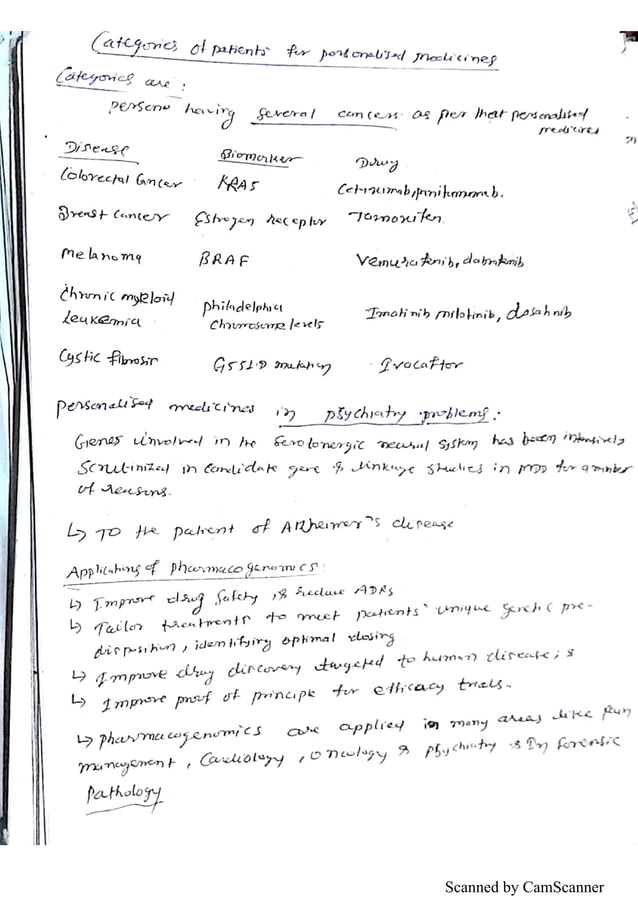 Categories of patients for personalised medicines
Categories are :
persons having several cancers as per that personalised
medicines
Disease Biomarker Drug
Colorectal Cancer KRAS Cetiximab, panitumomab.
Breast cancer Estrogen Receptor Tamoxifen
Melanoma BRAF Vemurafenib, dabrafenib
Chronic myeloid Philadelphia
Leukemia Chromosome levels Imatinib nilotinib, dasatinib
Cystic fibrosis G551D mutation Ivacaftor
personalised medicines in psychiatry problems :
Genes involved in the Serotonergic neural system has been intensively
Scrutinized in candidate gene & linkage studies in MDD for a number
of reasons.
↳ TO the patient of Alzheimer's disease
Applications of pharmacogenomics :
↳ Improve drug Safety, & reduce ADRs
↳ Tailor treatments to meet patients' unique genetic pre-
disposition, identifying optimal dosing
↳ Improve drug discovery targeted to human disease; &
↳ Improve proof of principle for efficacy trials.
↳ pharmacogenomics are applied in many areas like Pain
management, Cardiology, Oncology & psychiatry & In forensic
Pathology
Scanned by CamScanner